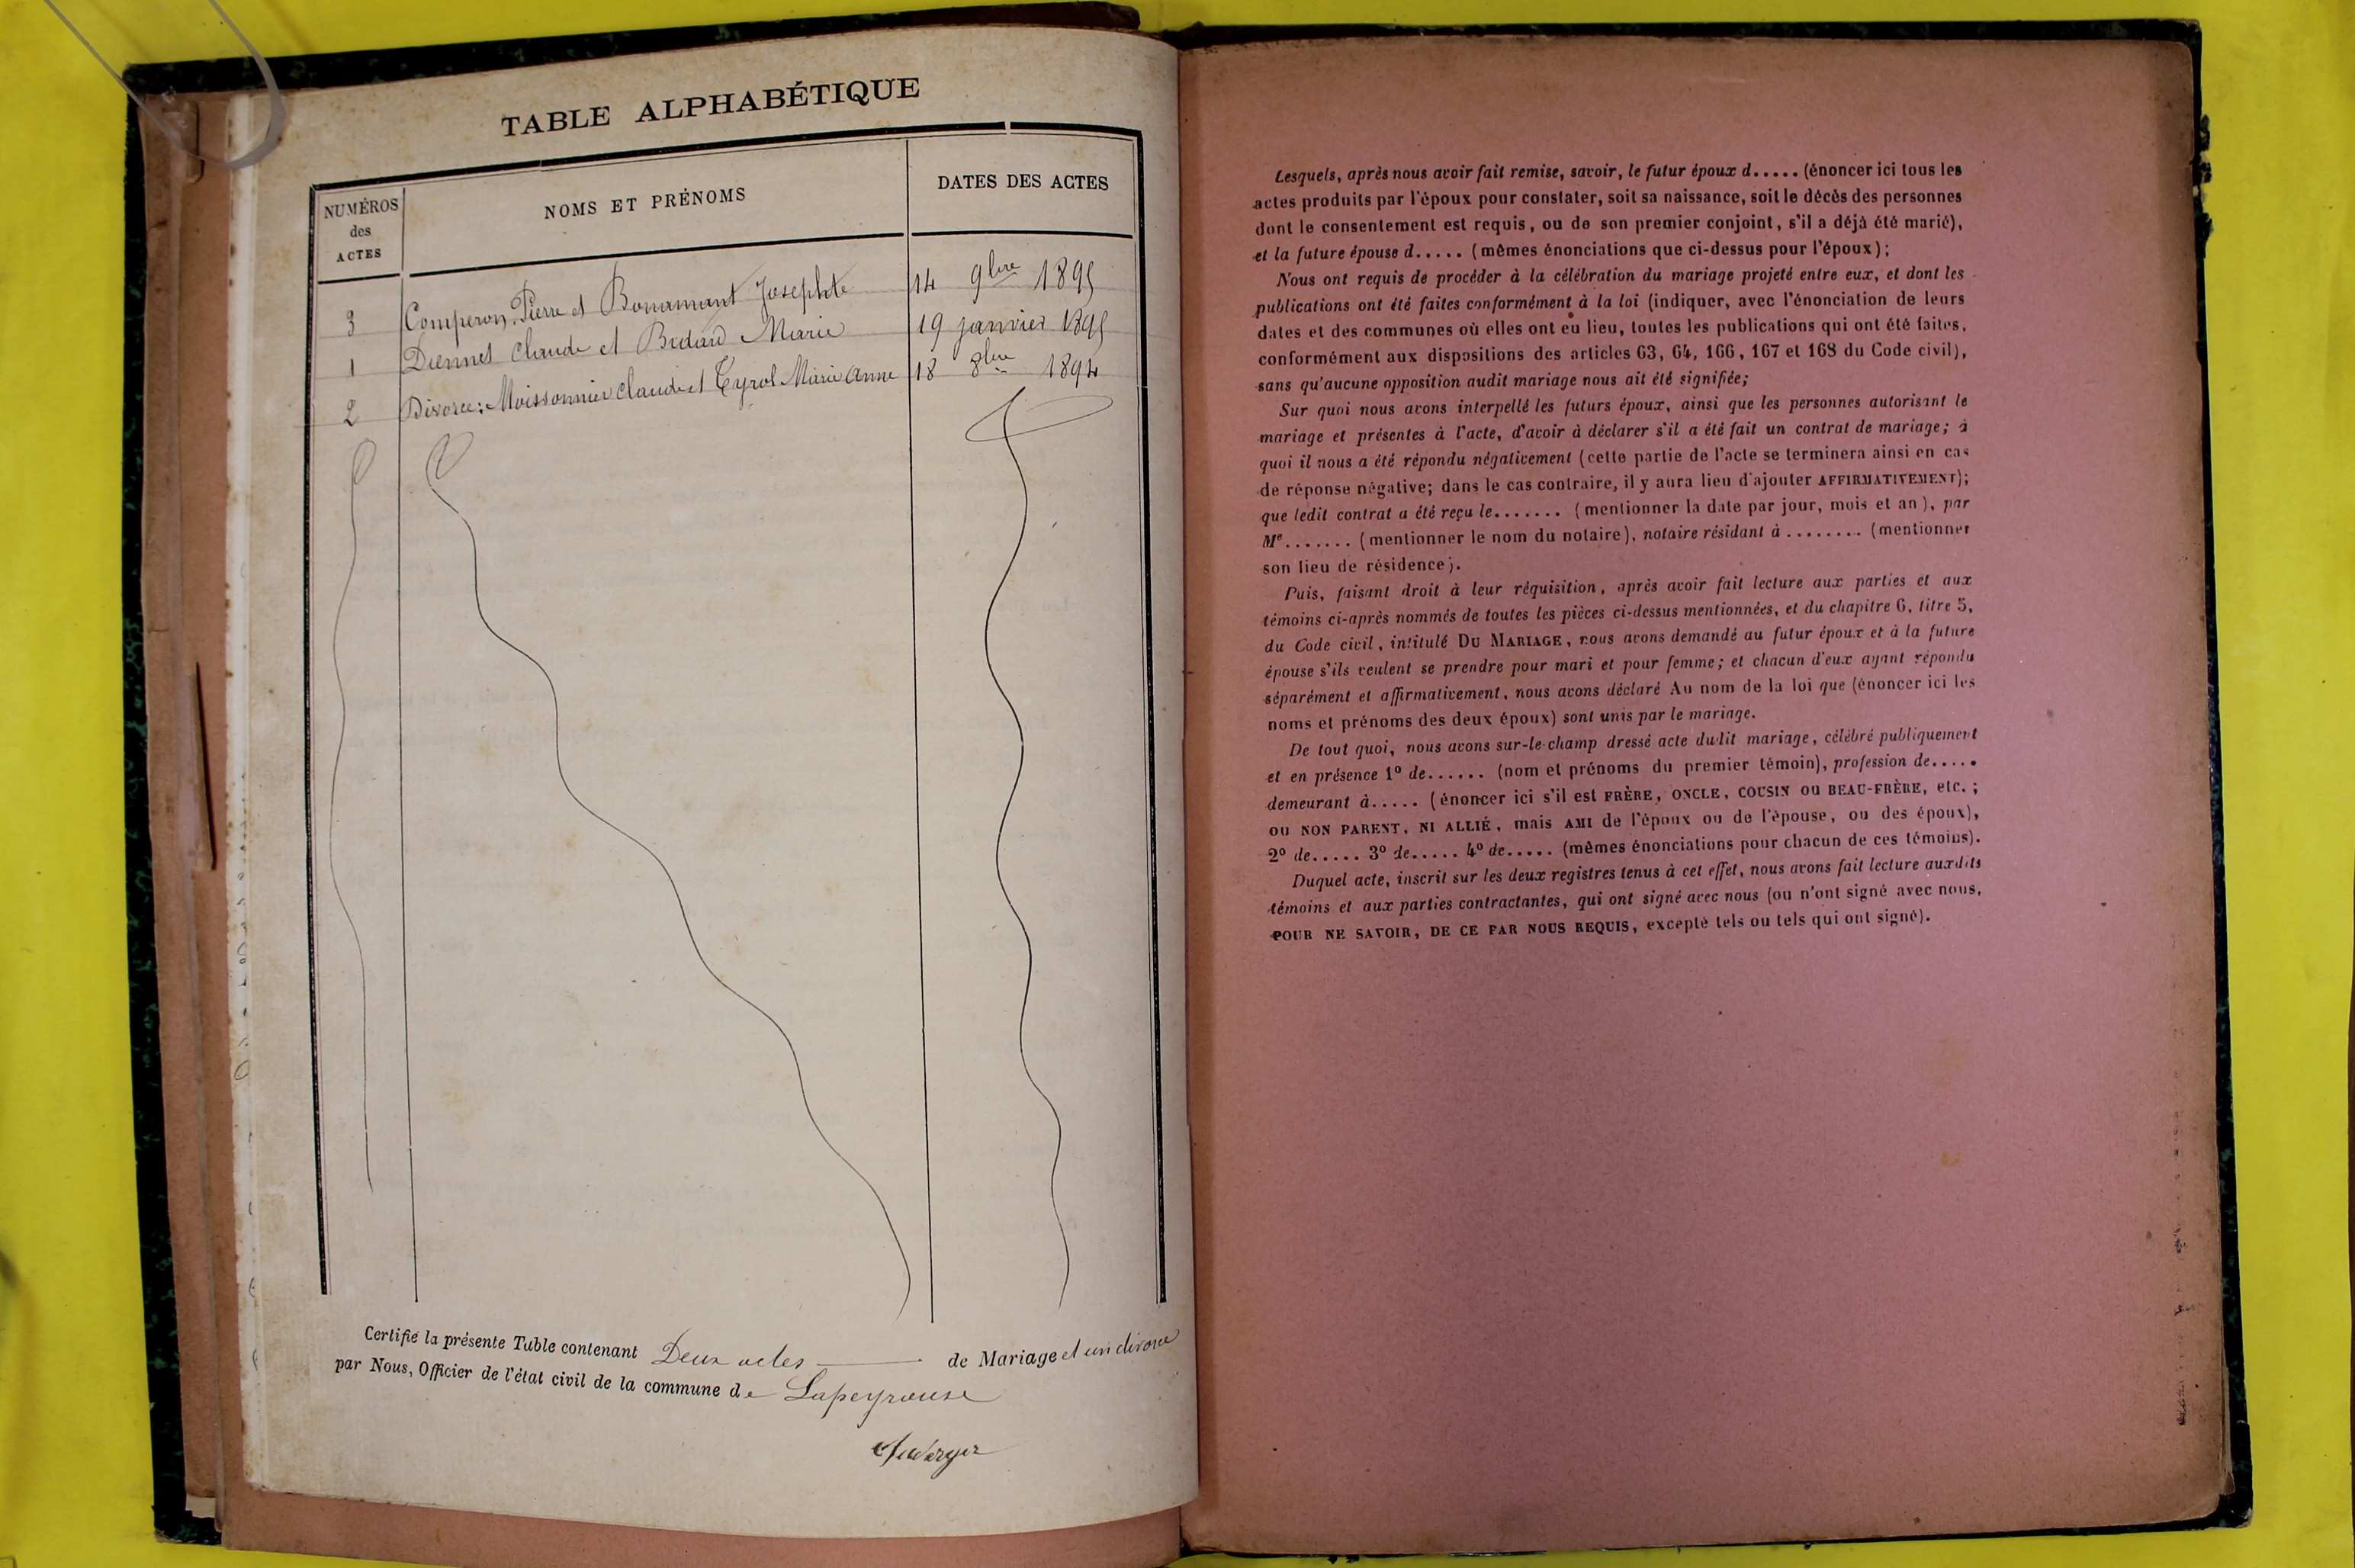 TABLE ALPHABÉTIQUE
NUMÉROS
des
ACTES
NOMS ET PRÉNOMS
DATES DES ACTES
3 Comperon Pierre et Bonamant Josephte 14 9bre 1895
1 Diennet Claude et Bidard Marie 19 janvier 1895
2 Divorce: Moissonnier Claude et Tyrol Marie Anne 18 8bre 1894
Certifié la présente Table contenant Deux actes de Mariage et un divorce
par Nous, Officier de l'état civil de la commune de Lapeyrouse
Lesquels, après nous avoir fait remise, savoir, le futur époux d..... (énoncer ici tous les
actes produits par l'époux pour constater, soit sa naissance, soit le décès des personnes
dont le consentement est requis, ou de son premier conjoint, s'il a déjà été marié),
et la future épouse d..... (mêmes énonciations que ci-dessus pour l'époux);
Nous ont requis de procéder à la célébration du mariage projeté entre eux, et dont les
publications ont été faites conformément à la loi (indiquer, avec l'énonciation de leurs
dates et des communes où elles ont eu lieu, toutes les publications qui ont été faites,
conformément aux dispositions des articles 63, 64, 166, 167 et 168 du Code civil),
sans qu'aucune opposition audit mariage nous ait été signifiée;
Sur quoi nous avons interpellé les futurs époux, ainsi que les personnes autorisant le
mariage et présentes à l'acte, d'avoir à déclarer s'il a été fait un contrat de mariage; à
quoi il nous a été répondu négativement (cette partie de l'acte se terminera ainsi en cas
de réponse négative; dans le cas contraire, il y aura lieu d'ajouter AFFIRMATIVEMENT);
que ledit contrat a été reçu le....... (mentionner la date par jour, mois et an), par
Me....... (mentionner le nom du notaire), notaire résidant à ........ (mentionner
son lieu de résidence).
Puis, faisant droit à leur réquisition, après avoir fait lecture aux parties et aux
témoins ci-après nommés de toutes les pièces ci-dessus mentionnées, et du chapitre 6, titre 5,
du Code civil, intitulé DU MARIAGE, nous avons demandé au futur époux et à la future
épouse s'ils veulent se prendre pour mari et pour femme; et chacun d'eux ayant répondu
séparément et affirmativement, nous avons déclaré Au nom de la loi que (énoncer ici les
noms et prénoms des deux époux) sont unis par le mariage.
De tout quoi, nous avons sur-le-champ dressé acte dudit mariage, célébré publiquement
et en présence 1º de...... (nom et prénoms du premier témoin), profession de.....
demeurant à..... (énoncer ici s'il est FRÈRE, ONCLE, COUSIN OU BEAU-FRÈRE, etc.;
OU NON PARENT, NI ALLIÉ, mais AMI de l'époux ou de l'épouse, ou des époux),
2º de..... 3º de..... 4º de..... (mêmes énonciations pour chacun de ces témoins).
Duquel acte, inscrit sur les deux registres tenus à cet effet, nous avons fait lecture auxdits
témoins et aux parties contractantes, qui ont signé avec nous (ou n'ont signé avec nous,
POUR NE SAVOIR, DE CE PAR NOUS REQUIS, excepté tels ou tels qui ont signé).